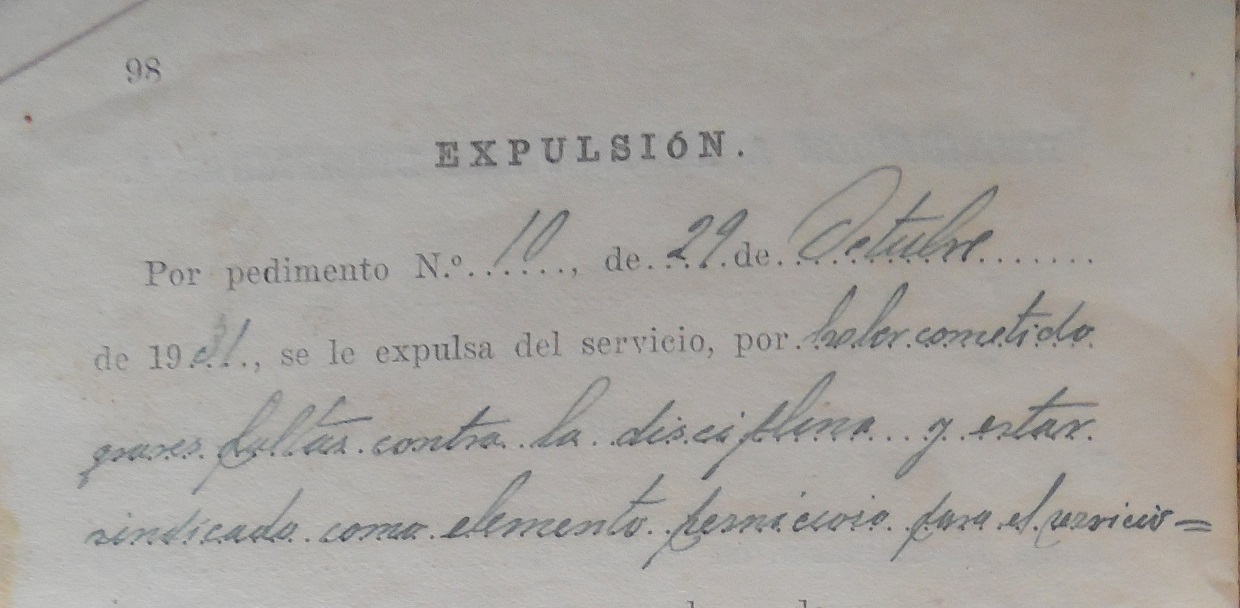 98
EXPULSIÓN.
Por pedimento N.º 10, de 29 de Octubre
de 1931., se le expulsa del servicio, por haber cometido
graves faltas contra la disciplina y estar
sindicado como elemento pernicioso para el servicio =